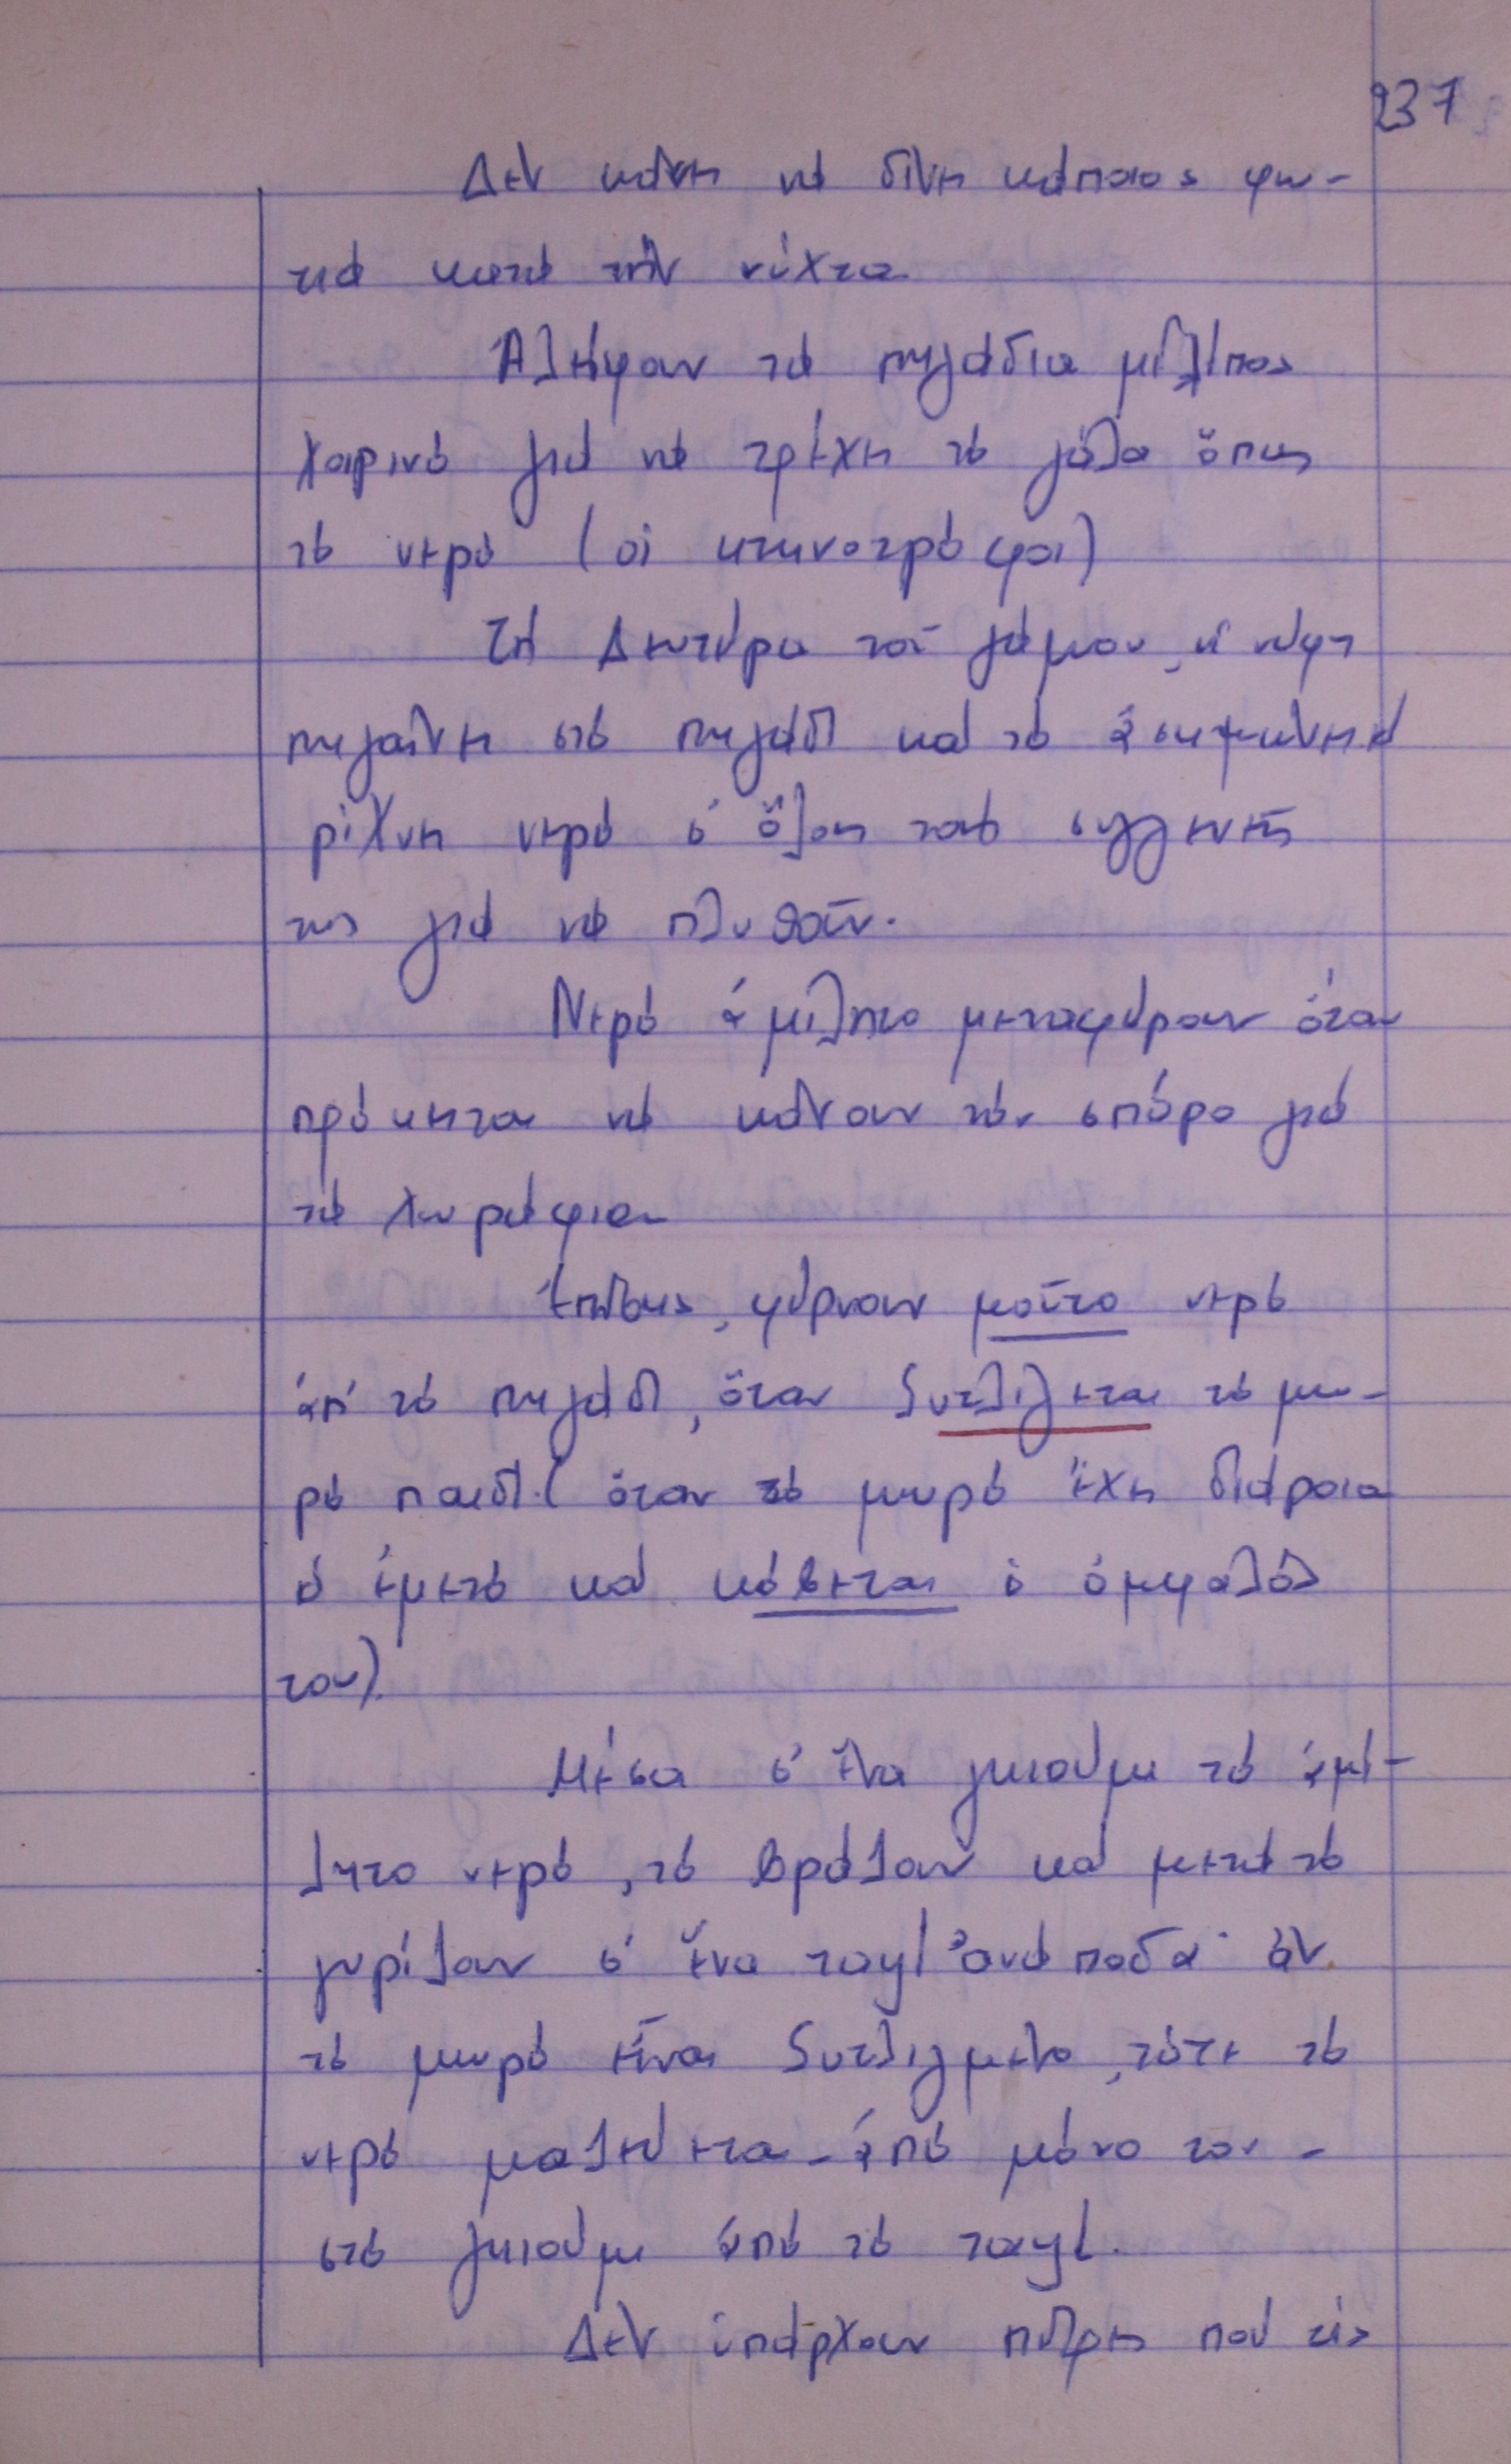 237
Δέν κάνει νά δίνη κάποιος φω-
τιά κατά τήν νύχτα
Ἀλείφουν τά πηγάδια μέ λίπος
χοιρινό γιά νά τρέχη τό γάλα ὅπως
τό νερό (οἱ κτηνοτρόφοι)
Τή Δευτέρα τοῦ γάμου, ἡ νύφη
πηγαίνει στό πηγάδι καί τό
ρίχνει νερό σ' ὅλους τούς συγγενεῖς
της γιά νά πλυθοῦν.
Νερό ἀμίλητο μεταφέρουν ὅταν
πρόκειται νά κάνουν τόν σπόρο γιά
τά χωράφια
Ἐπίσης, φέρνουν μοῦτο νερό
ἀπ' τό πηγάδι, ὅταν ξυτλίγεται τό μω-
ρό παιδί (ὅταν τό μωρό ἔχει διάρροια
ἤ ἐμετό καί κόβεται ὁ ὀμφαλός
του).
Μέσα σ' ἕνα γκιούμι τό ἀμί-
λητο νερό, τό βράζουν καί μετά τό
γυρίζουν σ' ἕνα ταψί ἀνάποδα· ἄν
τό μωρό εἶναι ξυτλιγμένο, τότε τό
νερό μαζεύεται - ἀπό μόνο του -
στό γκιούμι ἀπό τό ταψί.
Δέν ὑπάρχουν πέτρες πού τίς